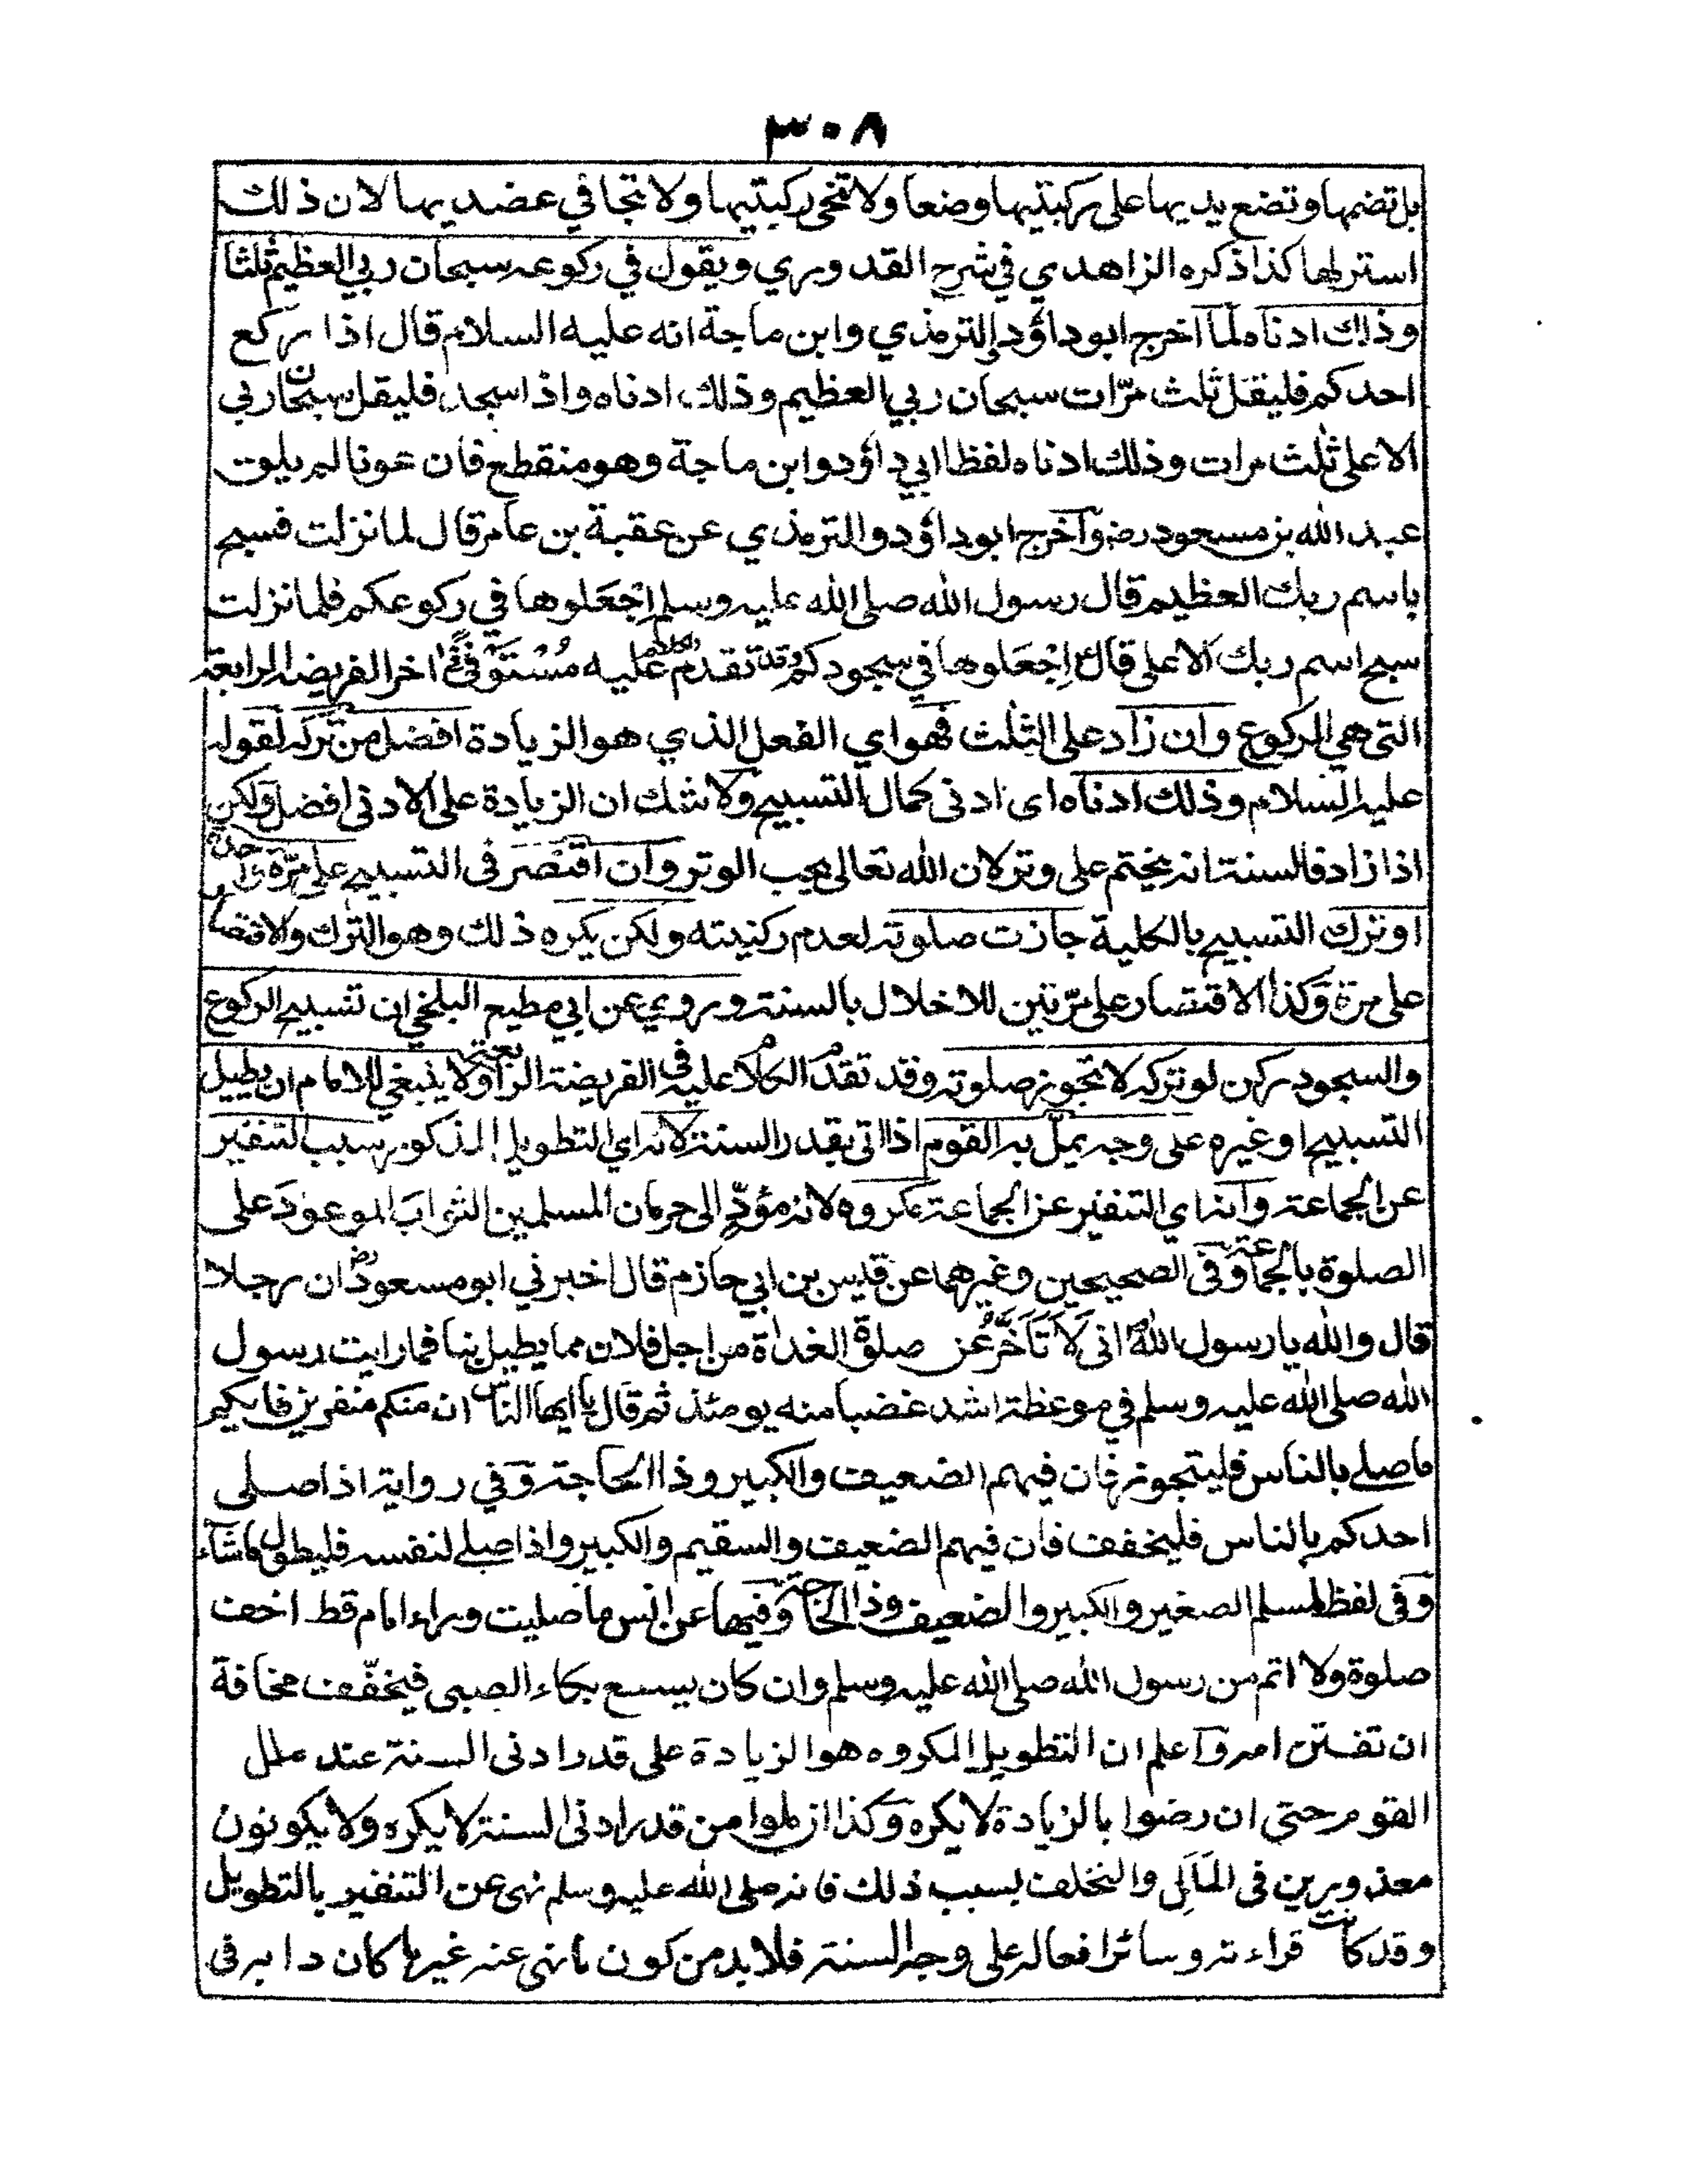 ٣٠٨
بل تضمها وتضع يديها على ركبتيها وضعا ولا تنحى ركبتيها ولا تجافي عضديها لان ذلك
استر لها كذا ذكره الزاهدي في شرح القدوري ويقول في ركوعه سبحان ربي العظيم ثلثا
وذلك ادناه لما اخرج ابو داؤد والترمذي وابن ماجة انه عليه السلام قال اذا ركع
احدكم فليقل ثلث مرّات سبحان ربي العظيم وذلك ادناه واذا سجد فليقل سبحان ربي
الاعلى ثلث مرات وذلك ادناه لفظ ابي داؤد وابن ماجة وهو منقطع فان عونا لم يلق
عبد الله بن مسعود رض وآخرج ابو داؤد والترمذي عن عقبة بن عامر قال لما نزلت فسبح
باسم ربك العظيم قال رسول الله صلى الله عليه وسلم اِجْعَلوها في ركوعكم فلما نزلت
سبح اسم ربك الاعلى قال اِجْعَلوها في سجودكم وقد تقدم الكلام عليه مُسْتَوْفًى في اخر الفريضة الرابعة
التى هي الركوع وان زاد على الثلث فهو اي الفعل الذي هو الزيادة افضل من تركه لقوله
عليه السلام وذلك ادناه اى ادنى كمال التسبيح ولا شك ان الزيادة على الادنى افضل ولكن
اذا زاد فالسنة انه يختم على وتر لان الله تعالى يحب الوتر وان اقتصر فى التسبيح على مرّة واحدة
او ترك التسبيح بالكلية جازت صلوته لعدم ركنيته ولكن يكره ذلك وهو الترك والاقتصار
على مرة وَكذا الاقتصار على مرّتين للاخلال بالسنة وروي عن ابي مطيع البلخي ان تسبيح الركوع
والسجود ركن لو تركه لا تجوز صلوته وقد تقدم الكلام عليه فى الفريضة الرابعة ولا ينبغي للامام ان يطيل
التسبيح او غيره على وجه يملّ به القوم اذا اتى بقدر السنة لانه اي التطويل المذكور سبب التنفير
عن الجماعة وآنه اي التنفير عن الجماعة مكروه لانه مؤدٍّ الى حرمان المسلمين الثواب الموعودَ على
الصلوة بالجماعة وفى الصحيحين وغيرهما عن قيس بن ابي حازم قال اخبرني ابو مسعود رض ان رجلا
قال والله يا رسول الله انى لَاَتَاَخَّرُ عن صلوة الغداة من اجل فلان مما يطيل بنا فما رايت رسول
الله صلى الله عليه وسلم في موعظة اشد غضبا منه يومئذ ثم قال يا ايها الناس ان منكم منفرين فايكم
ما صلے بالناس فليتجوز فان فيهم الضعيف والكبير وذا الحاجة وَفي رواية اذا صلى
احدكم بالناس فليخفف فان فيهم الضعيف والسقيم والكبير واذا صلے لنفسه فليطول ما شآء
وَفى لفظ لمسلم الصغير والكبير والضعيف وذا الحاجة وَفيهما عن انس ما صليت وراء امام قط اخف
صلوة ولا اتم من رسول الله صلى الله عليه وسلم وان كان يسمع بكاء الصبى فيخفّف مخافة
ان تفتتن امه وَآعلم ان التطويل المكروه هو الزيادة على قدر ادنى السنة عند ملل
القوم حتى ان رضوا بالزيادة لا يكره وَكذا ان ملوا من قدر ادنى السنة لا يكره ولا يكونون
معذورين فى المَلَل والتخلف بسبب ذلك فانه صلى الله عليه وسلم نهى عن التنفير بالتطويل
وقد كانت قراءته وسائر افعاله على وجه السنة فلا بد من كون ما نهى عنه غير ما كان دابه فى